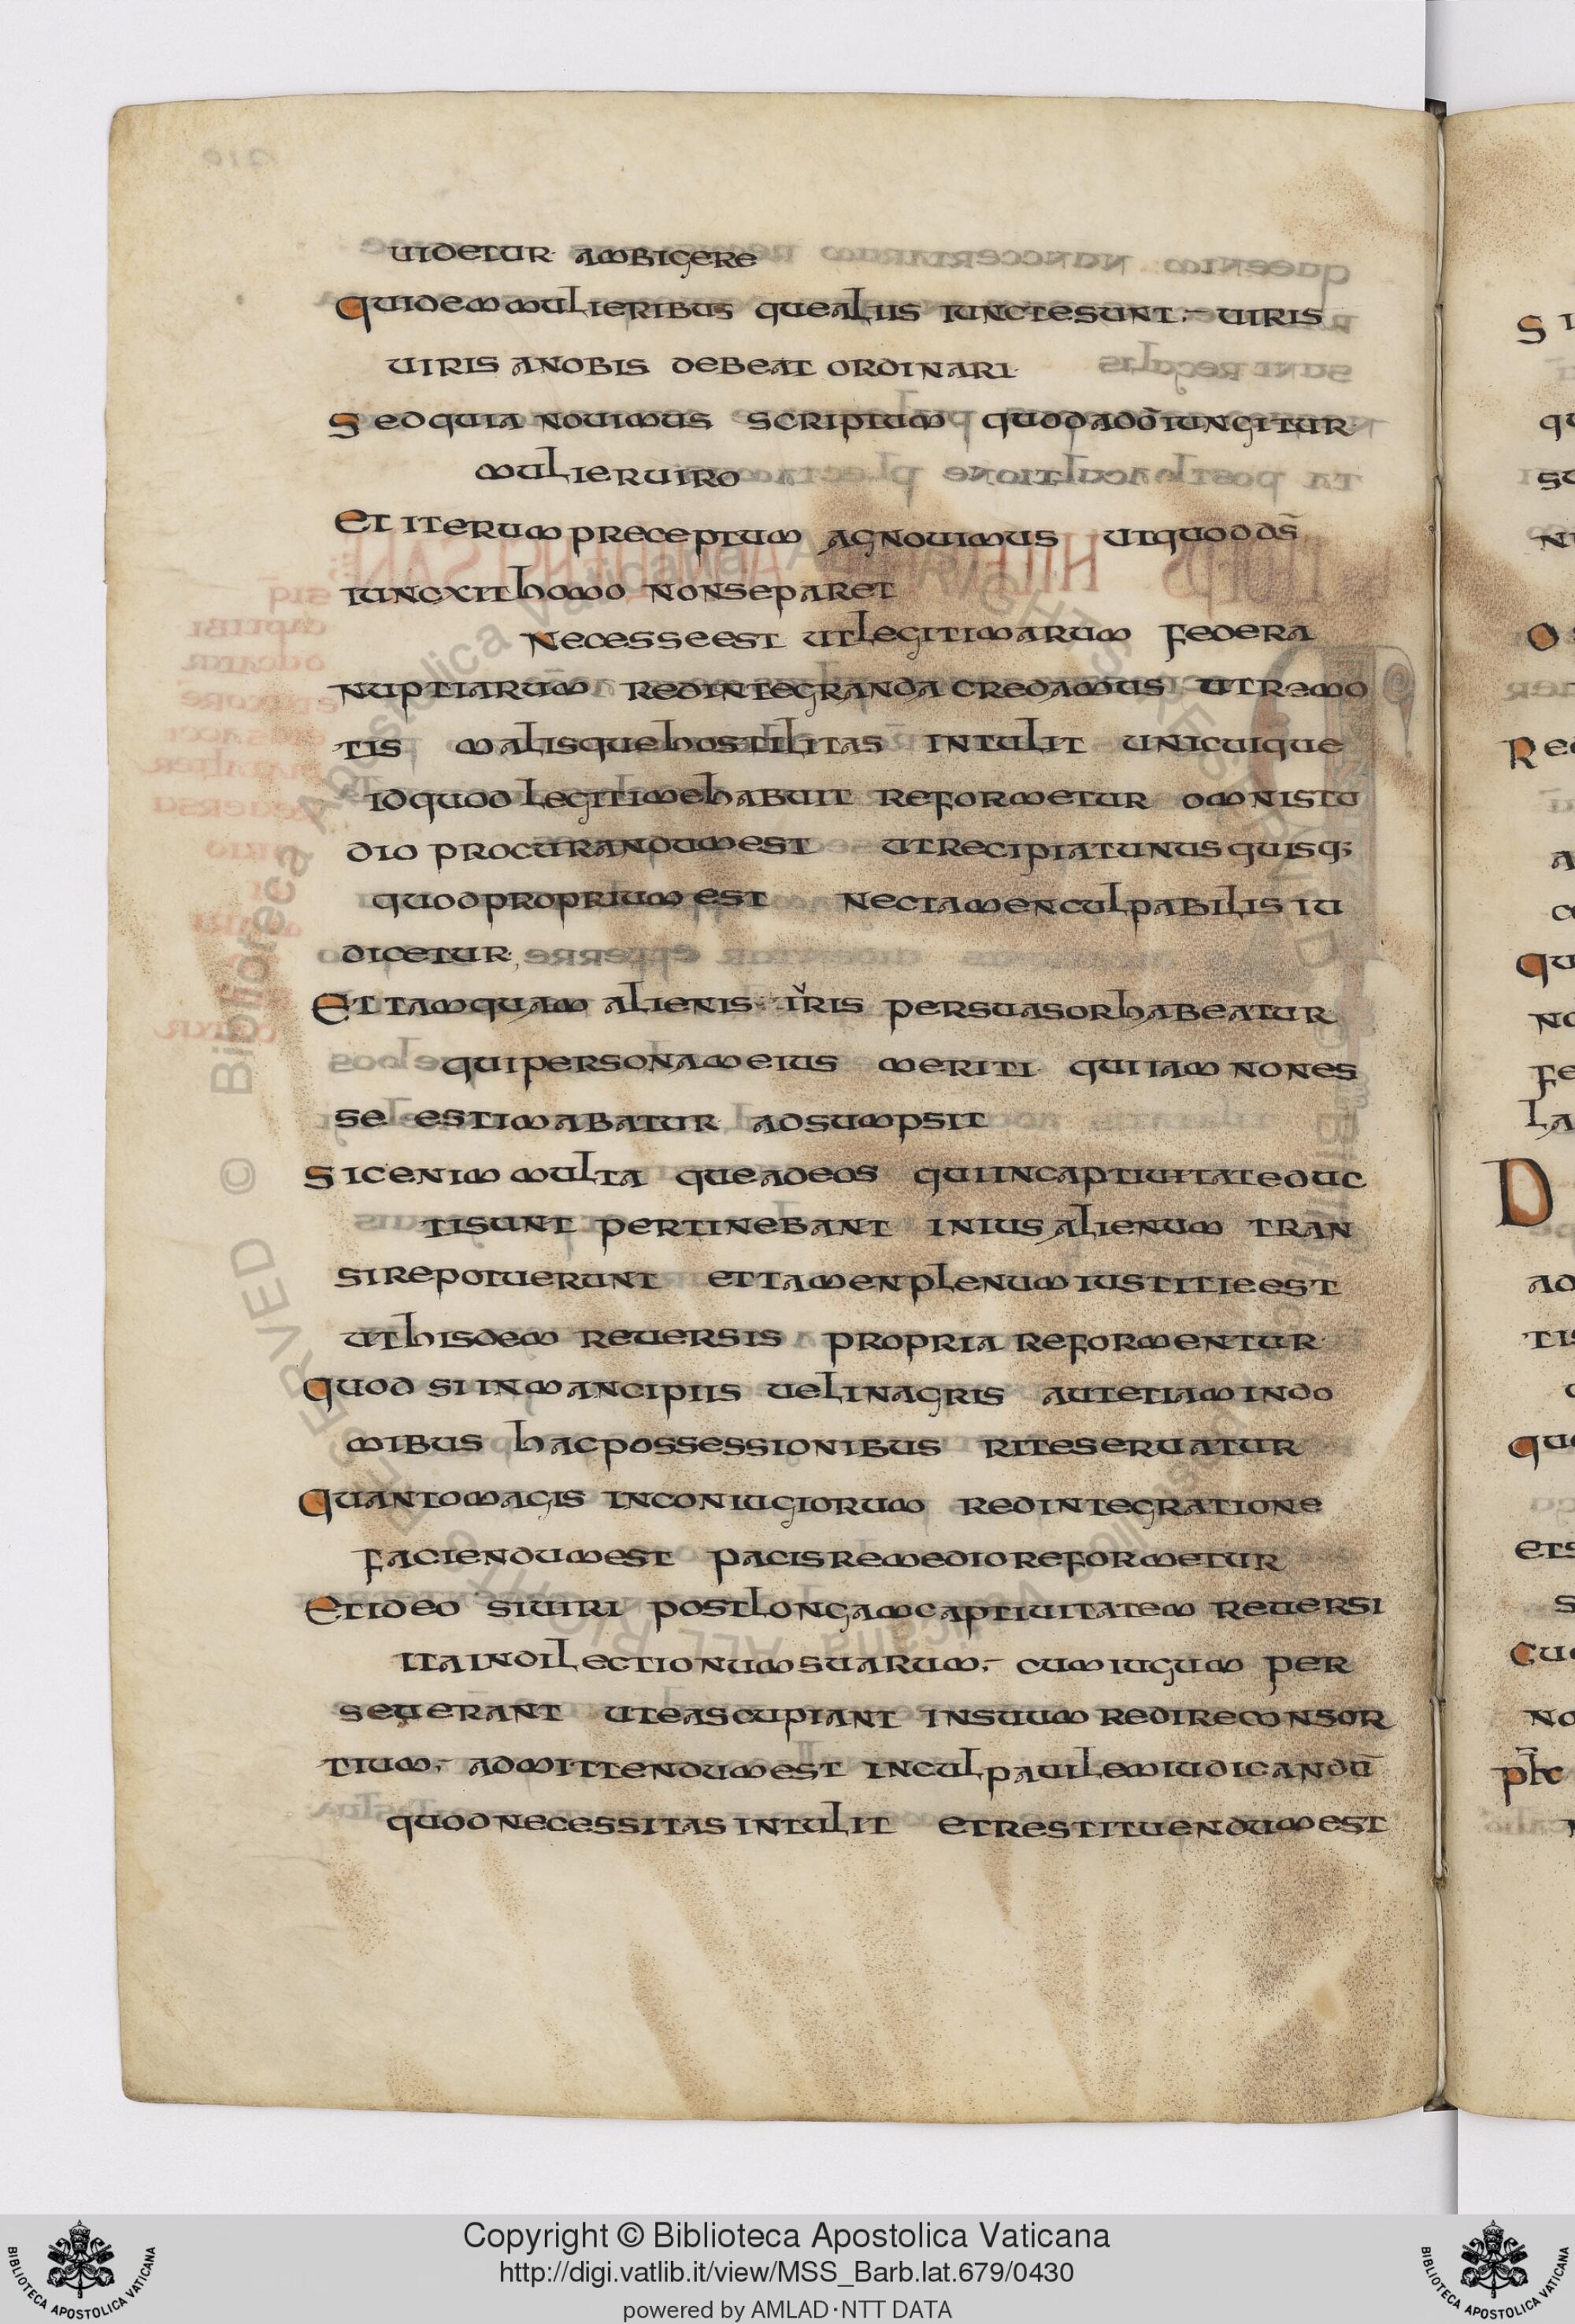 uidetur ambigere
Quidem mulieribus que aliis iuncte sunt. uiris
uiris a nobis debeat ordinari
Sed quia nouimus scriptum quod a dō iungitur
mulier uiro
Et iterum preceptum agnouimus ut quod ds̄
iuncxit homo non separet
Necesse est ut legitimarum federa
nuptiarum redintegranda credamus ut remo
tis malis que hostilitas intulit unicuique
id quod legitime habuit reformetur omni stu
dio procurandum est ut recipiat unus quisq;
quod proprium est nec tamen culpabilis iu
dicetur
Et tamquam alienis iŭris persuasor habeatur
qui personam eius meriti qui iam non es
se estimabatur adsumpsit
Sic enim multa que ad eos qui in captiuitate duc
ti sunt pertinebant in ius alienum tran
sire potuerunt et tamen plenum iustitie est
ut hisdem reuersis propria reformentur
Quod si in mancipiis uel in agris aut etiam in do
mibus hac possessionibus rite seruatur
Quanto magis in coniugiorum redintegratione
faciendum est pacis remedio reformetur
Et ideo si uiri post longam captiuitatem reuersi
ita in dilectionum suarum. cum iugum per
seuerant ut eas cupiant in suum redire consor
tium. admittendum est inculpauilem iudicandū
quod necessitas intulit et restituendum est
Copyright © Biblioteca Apostolica Vaticana
http://digi.vatlib.it/view/MSS_Barb.lat.679/0430
powered by AMLAD·NTT DATA
BIBLIOTECA APOSTOLICA VATICANA
BIBLIOTECA APOSTOLICA VATICANA